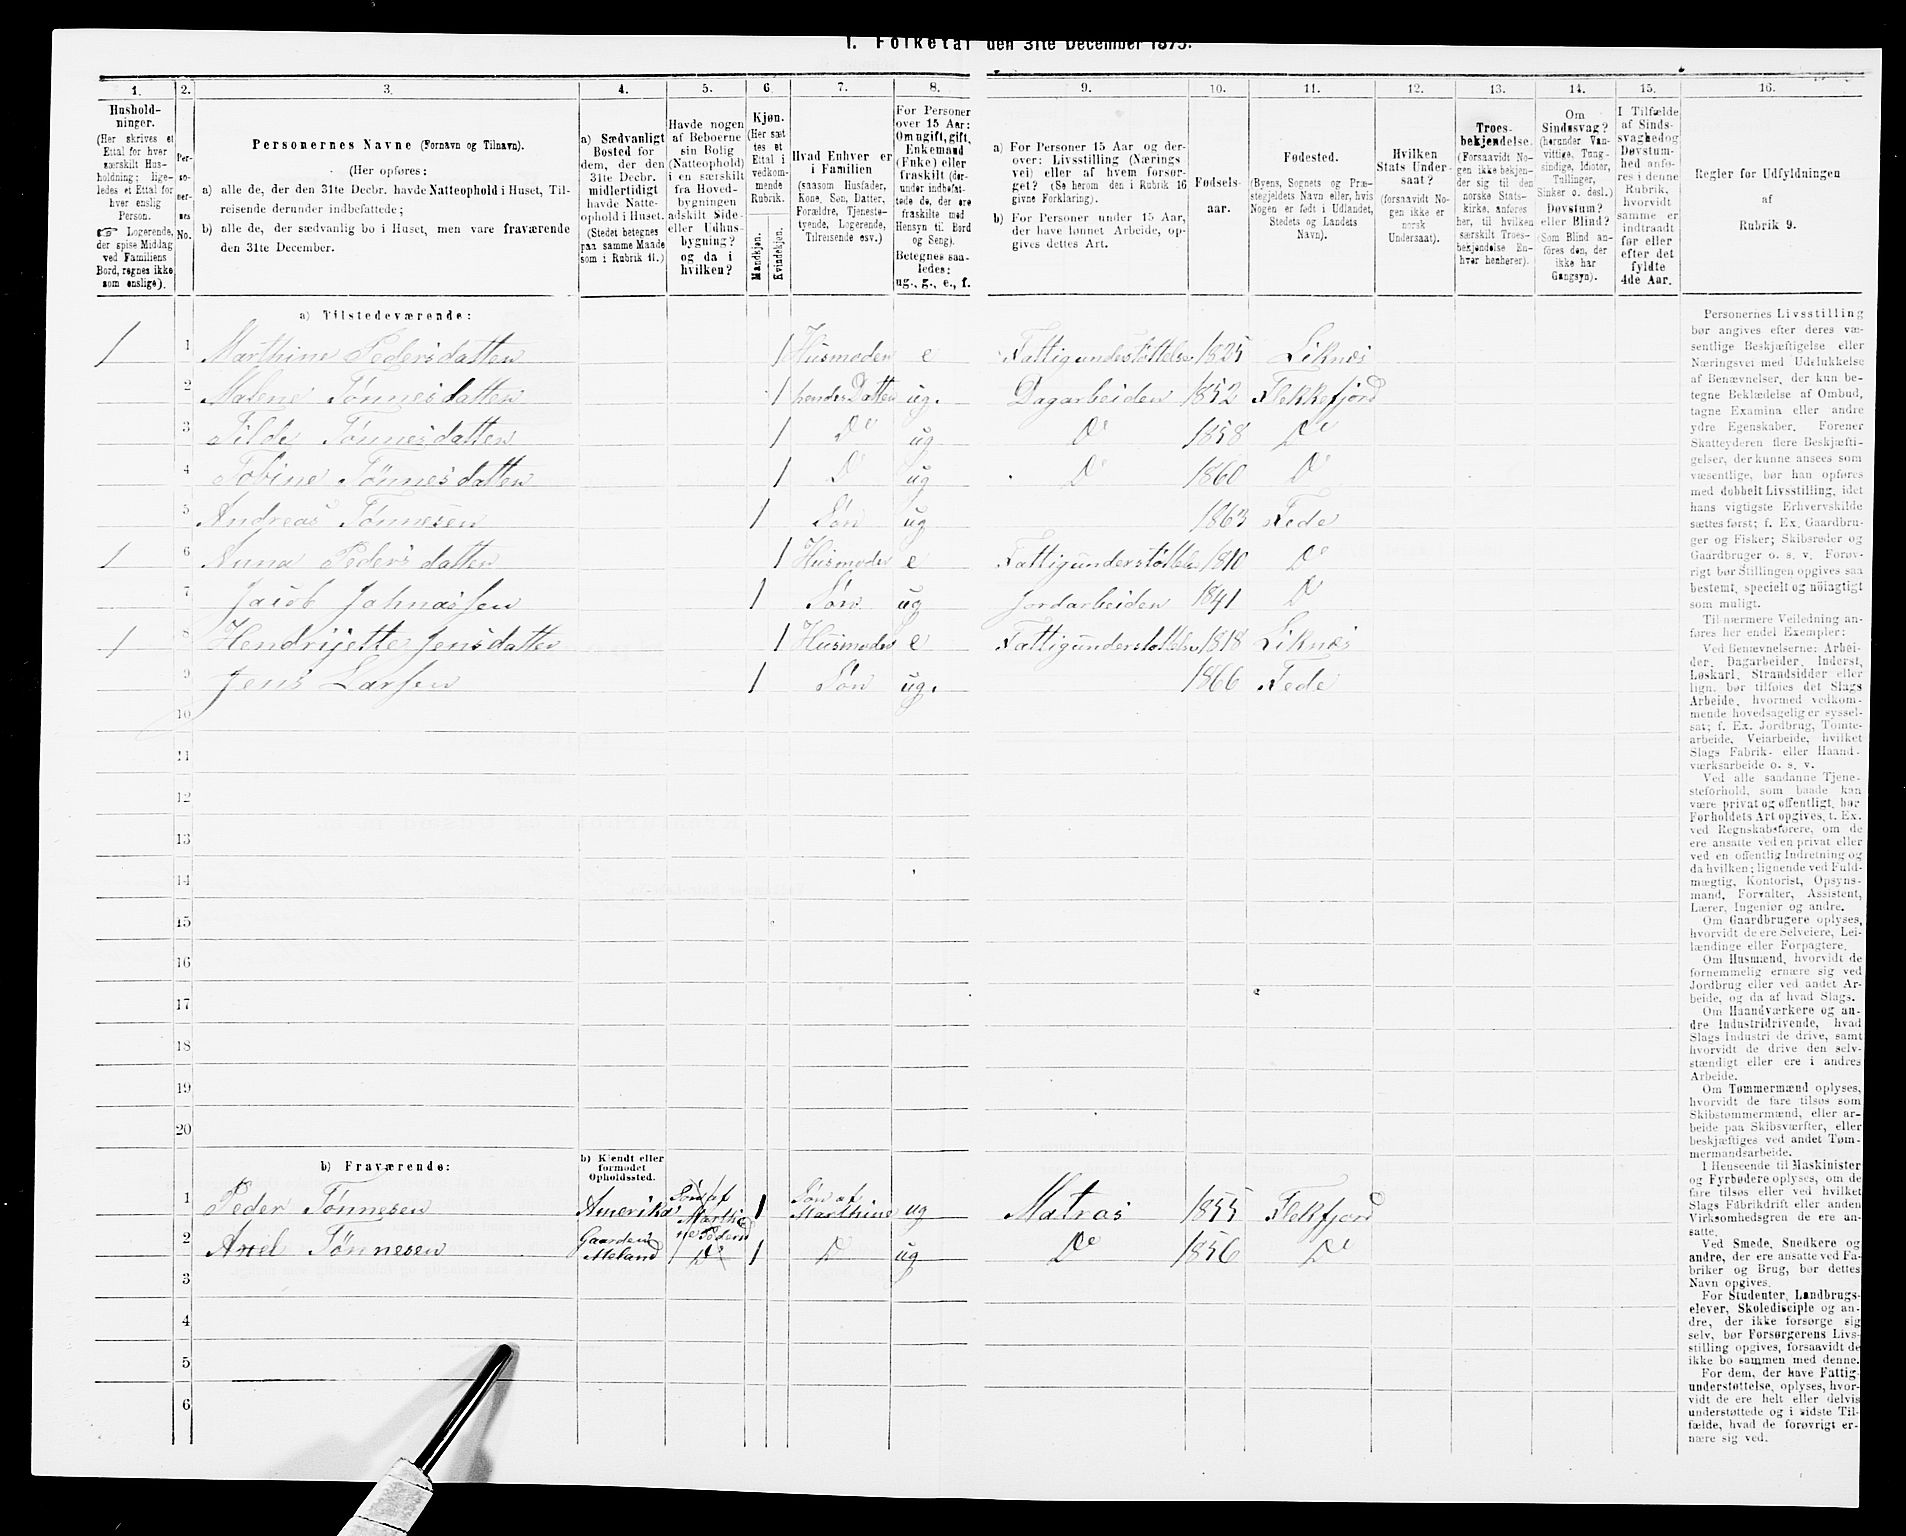 1. Folketal den 31te December 1875.
1. 2. 3. 4. 5. 6. 7. 8. 9. 10. 11. 12. 13. 14. 15. 16.
Hushold-
ninger.
(Her skrives et
Ettal for hver
særskilt Hus-
holdning; lige-
ledes et Ettal for
hver enslig
Person.
☞ Logerende,
der spise Middag
ved Familiens
Bord, regnes ikke
som enslige).
Per-
soner-
nes
No.
Personernes Navne (Fornavn og Tilnavn).
(Her opføres:
a) alle de, der den 31te Decbr. havde Natteophold i Huset, Til-
reisende derunder indbefattede;
b) alle de, der sædvanlig bo i Huset, men vare fraværende
den 31te December.
a) Sædvanligt
Bosted for
dem, der den
31te Decbr.
midlertidigt
havde Natte-
ophold i Huset.
(Stedet betegnes
paa samme Maade
som i Rubrik 11.)
Havde nogen
af Beboerne
sin Bolig
(Natteophold)
i en særskilt
fra Hoved-
bygningen
adskilt Side-
eller Udhus-
bygning?
og da i
hvilken?
Kjøn.
(Her sæt
tes et
Ettal i
vedkom-
mende
Rubrik.
Mandkjøn.
Kvindekjøn.
Hvad Enhver er
i Familien
(saasom Husfader,
Kone, Søn, Datter,
Forældre, Tjeneste-
tyende, Logerende,
Tilreisende osv.)
For Personer
over 15 Aar:
Om ugift, gift,
Enkemand
(Enke) eller
fraskilt (der-
under indbefat-
tede de, der ere
fraskilte med
Hensyn til Bord
og Seng).
Betegnes saa-
ledes:
ug., g., e., f.
a) For Personer 15 Aar og der-
over: Livsstilling (Nærings
vei) eller af hvem forsør-
get? (Se herom den i Rubrik 16
givne Forklaring).
b) For Personer under 15 Aar,
der have lønnet Arbeide, op-
gives dettes Art.
Fødsels-
aar.
Fødested.
(Byens, Sognets og Præ-
stegjeldets Navn eller, hvis
Nogen er født i Udlandet,
Stedets og Landets
Navn).
Hvilken
Stats Under-
saat?
(forsaavidt No-
gen ikke er
norsk
Undersaat).
Troes-
bekjendelse.
(Forsaavidt No-
gen ikke bekjen-
der sig til den
norske Stats-
kirke, anføres
her, til hvilken
særskilt Troes-
bekjendelse En-
hver henhører).
Om
Sindssvag?
(herunder Van-
vittige, Tung-
sindige, Idioter,
Tullinger,
Sinker o. desl.)
Døvstum?
eller Blind?
(Som Blind an-
føres den, der
ikke har
Gangsyn).
I Tilfælde
af Sinds-
svaghed og
Døvstum-
hed anfø-
res i denne
Rubrik,
hvorvidt
samme er
indtraadt
før eller
efter det
fyldte
4de Aar.
Regler for Udfyldningen
af
Rubrik 9.
a) Tilstedeværende:
1 1 Marthine Pedersdatten 1 Husmoder e Fattigunderstøttelse 1825 Liknes
2 Malene Tønnesdatten 1 hendes Datten ug. Dagarbeiden 1852 Flekkefjord
3 Tilde Tønnesdatten 1 Do ug Do 1858 Do
4 Tobine Tønnesdatten 1 Do ug Do 1860 Do
5 Andreas Tønnesen 1 Søn ug 1863 Fede
1 6 Anna Pedersdatten 1 Husmoder e Fattigunderstøttelse 1810 Do
7 Jacob Johnassen 1 Søn ug Jordarbeiden 1841 Do
1 8 Hendrijette Jensdatter 1 Husmoder e Fattigunderstøttelse 1818 Liknes
9 Jens Larsen 1 Søn ug. 1866 Fede
10
11
12
13
14
15
16
17
18
19
20
b) Fraværende:
b) Kjendt eller
formodet
Opholdssted.
1 Peder Tønnesen Amerika Søn af Marthine Peders 1 Søn af Marthine ug Matros 1855 Flekfjord
2 Axel Tønnesen Gaarden Meland Do 1 Do ug Do 1856 Do
3
4
5
6
Personernes Livsstilling
bør angives efter deres væ-
sentlige Beskjæftigelse eller
Næringsvei med Udelukkelse
af Benævnelser, der kun be-
tegne Beklædelse af Ombud,
tagne Examina eller andre
ydre Egenskaber. Forener
Skatteyderen flere Beskjæfti-
gelser, der kunne ansees som
væsentlige, bør han opføres
med dobbelt Livsstilling, idet
hans vigtigste Erhvervskilde
sættes først; f. Ex. Gaardbru-
ger og Fisker; Skibsreder og
Gaardbruger o. s. v. Forøv-
rigt bør Stillingen opgives saa
bestemt, specielt og nøiagtigt
som muligt.
Til nærmere Veiledning an-
føres her endel Exempler:
Ved Benævnelserne: Arbei-
der, Dagarbeider, Inderst,
Løskarl, Strandsidder eller
lign. bør tilføies det Slags
Arbeide, hvormed vedkom-
mende hovedsagelig er syssel-
sat; f. Ex. Jordbrug, Tomte-
arbeide, Veiarbeide, hvilket
Slags Fabrik- eller Haand-
værksarbeide o. s. v.
Ved alle saadanne Tjene-
steforhold, som baade kan
være privat og offentligt, bør
Forholdets Art opgives, t. Ex.
ved Regnskabsførere, om de
ere ansatte ved en privat eller
ved en offentlig Indretning og
da hvilken; lignende ved Fuld-
mægtig, Kontorist, Opsyns-
mand, Forvalter, Assistent,
Lærer, Ingeniør og andre.
Om Gaardbrugere oplyses,
hvorvidt de ere Selveiere, Lei-
lændinge eller Forpagtere.
Om Husmænd, hvorvidt de
fornemmelig ernære sig ved
Jordbrug eller ved andet Ar-
beide, og da af hvad Slags.
Om Haandværkere og an-
dre Industridrivende, hvad
Slags Industri de drive, samt
hvorvidt de drive den selv-
stændigt eller ere i andres
Arbeide.
Om Tømmermænd oplyses,
hvorvidt de fare tilsøs som
Skibstømmermænd, eller ar-
beide paa Skibsværfter, eller
beskjæftiges ved andet Tøm-
mermandsarbeide.
I Henseende til Maskinister
og Fyrbødere oplyses, om de
fare tilsøs eller ved hvilket
Slags Fabrikdrift eller anden
Virksomhedsgren de ere an-
satte.
Ved Smede, Snedkere og
andre, der ere ansatte ved Fa-
briker og Brug, bør dettes
Navn opgives.
For Studenter, Landbrugs-
elever, Skoledisciple og an-
dre, der ikke forsørge sig
selv, bør Forsørgerens Livs-
stilling opgives, forsaavidt de
ikke bo sammen med denne.
For dem, der have Fattig-
understøttelse, oplyses, hvor-
vidt de ere helt eller delvis
understøttede og i sidste Til-
fælde, hvad de forøvrigt er-
nære sig ved.